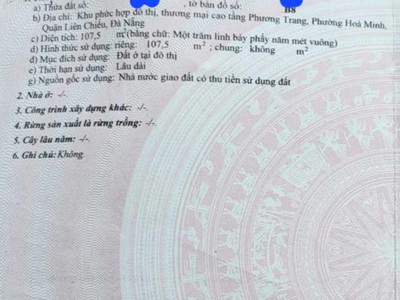 a) Thửa đất số: , tờ bản đồ số:
b) Địa chỉ: Khu phức hợp đô thị, thương mại cao tầng Phương Trang, Phường Hoà Minh,
Quận Liên Chiểu, Đà Nẵng
c) Diện tích: 107,5 m² (bằng chữ: Một trăm linh bảy phẩy năm mét vuông)
d) Hình thức sử dụng: riêng: 107,5 m² ; chung: không m²
đ) Mục đích sử dụng: Đất ở tại đô thị
e) Thời hạn sử dụng: Lâu dài
g) Nguồn gốc sử dụng: Nhà nước giao đất có thu tiền sử dụng đất
2. Nhà ở: -/-
3. Công trình xây dựng khác: -/-
4. Rừng sản xuất là rừng trồng: -/-
5. Cây lâu năm: -/-
6. Ghi chú: Không.